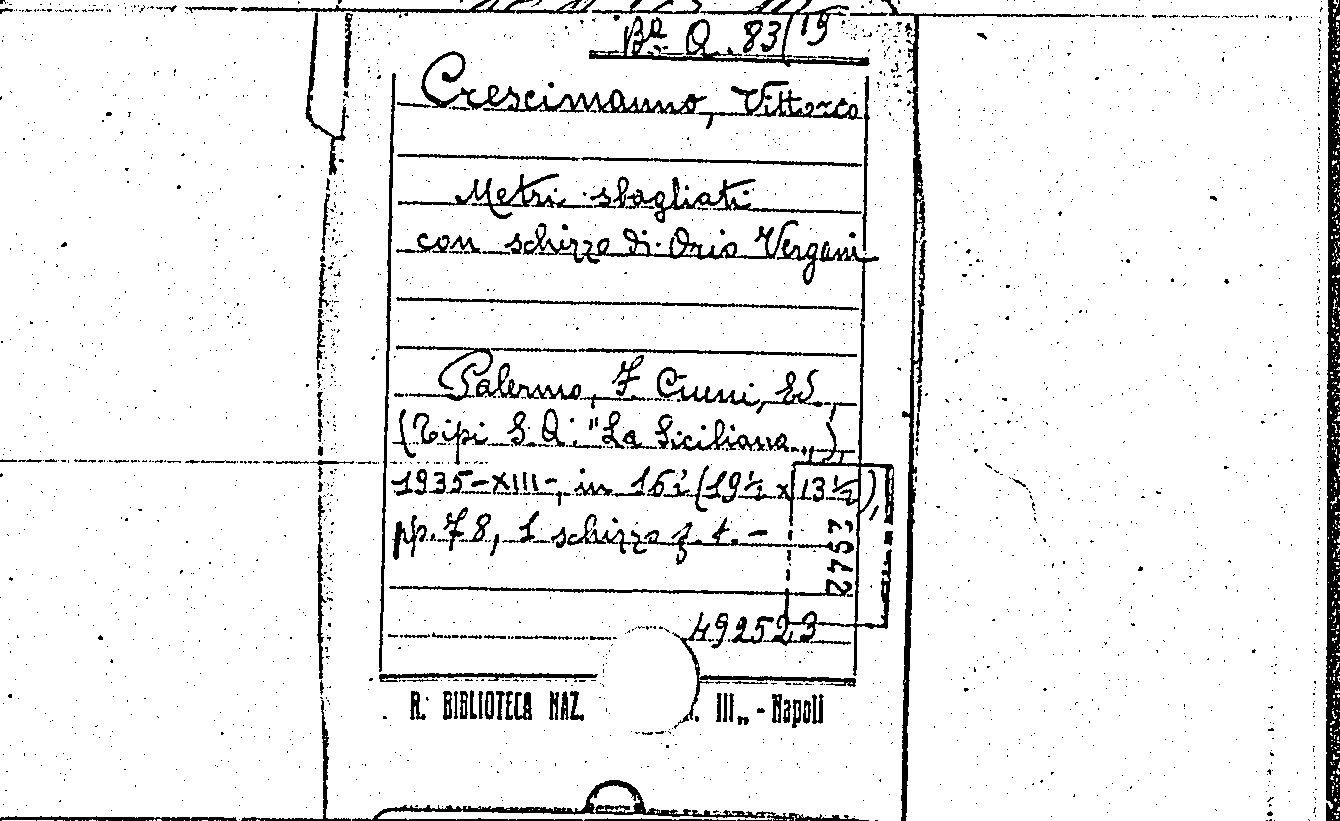 Bª Q. 83/19
Crescimanno, Vittorio
Metri sbagliati
con schizzo di Orio Vergani
Palermo, F. Ciuni, Ed.,
(Tipi S. A. "La Siciliana„),
1935-XIII-, in 16i (19½ x 13½),
pp. 78, 1 schizzo f. t. -
22942
492523
R. BIBLIOTECA NAZ. III„ - Napoli